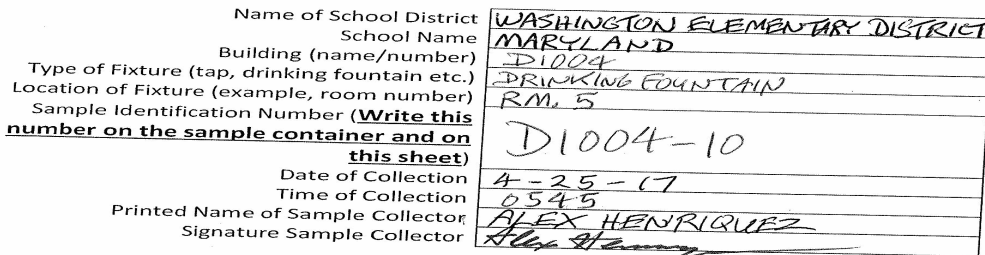 Name of School District WASHINGTON ELEMENTARY DISTRICT
School Name MARYLAND
Building (name/number) D1004
Type of Fixture (tap, drinking fountain etc.) DRINKING FOUNTAIN
Location of Fixture (example, room number) RM. 5
Sample Identification Number (Write this
number on the sample container and on
this sheet) D1004-10
Date of Collection 4-25-17
Time of Collection 0545
Printed Name of Sample Collector ALEX HENRIQUEZ
Signature Sample Collector Alex